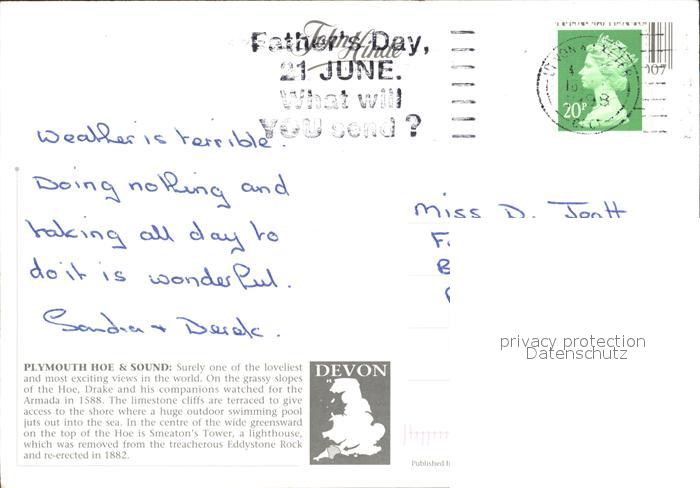 John Hinde
Father's Day,
21 JUNE.
What will
YOU send ?
20P
107
Weather is terrible.
Doing nothing and
taking all day to
do it is wonderful.
Sandra + Derek.
Miss D.
privacy protection
Datenschutz
PLYMOUTH HOE & SOUND: Surely one of the loveliest
and most exciting views in the world. On the grassy slopes
of the Hoe, Drake and his companions watched for the
Armada in 1588. The limestone cliffs are terraced to give
access to the shore where a huge outdoor swimming pool
juts out into the sea. In the centre of the wide greensward
on the top of the Hoe is Smeaton's Tower, a lighthouse,
which was removed from the treacherous Eddystone Rock
and re-erected in 1882.
DEVON
Published